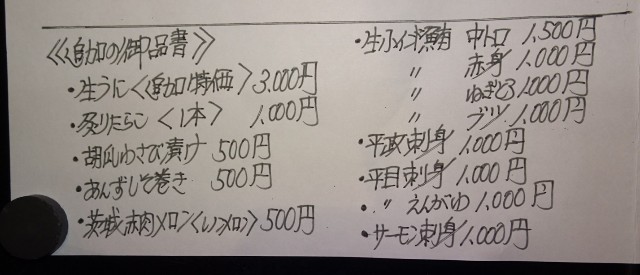 《追加の御品書》
・生うに〈追加特価〉3,000円
・炙りたらこ〈1本〉1,000円
・胡瓜わさび漬け 500円
・あんずしそ巻き 500円
・茨城赤肉メロン〈レノンメロン〉500円
・生インド鮪 中トロ 1,500円
〃 赤身 1,000円
〃 ねぎとろ 1,000円
〃 ブツ 1,000円
・平政刺身 1,000円
・平目刺身 1,000円
・〃 えんがわ 1,000円
・サーモン刺身 1,000円